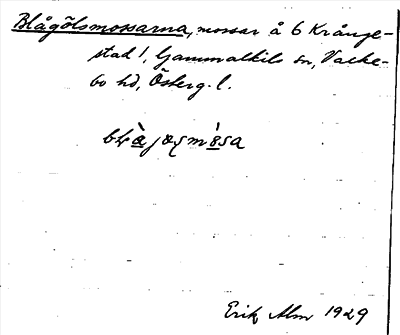 Blågölsmossarna, mossar å 6 Krånge-
stad 1, Gammalkils sn, Valke-
bo hd, Österg. l.
Erik Alm 1929